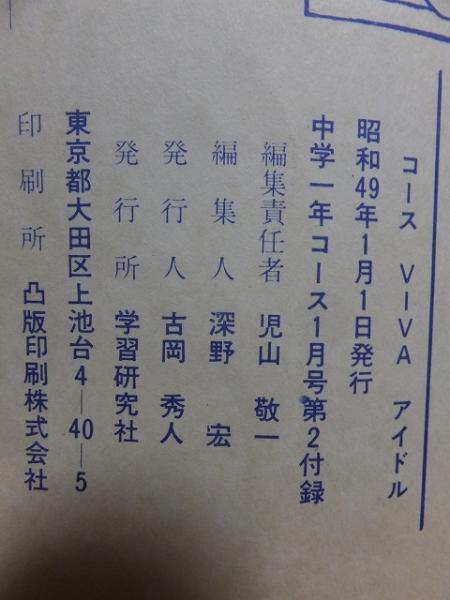 コース VIVA アイドル
昭和49年1月1日発行
中学一年コース1月号第2付録
編集責任者 児山 敬一
編集人 深野 宏
発行人 古岡 秀人
発行所 学習研究社
東京都大田区上池台4―40―5
印刷所 凸版印刷株式会社